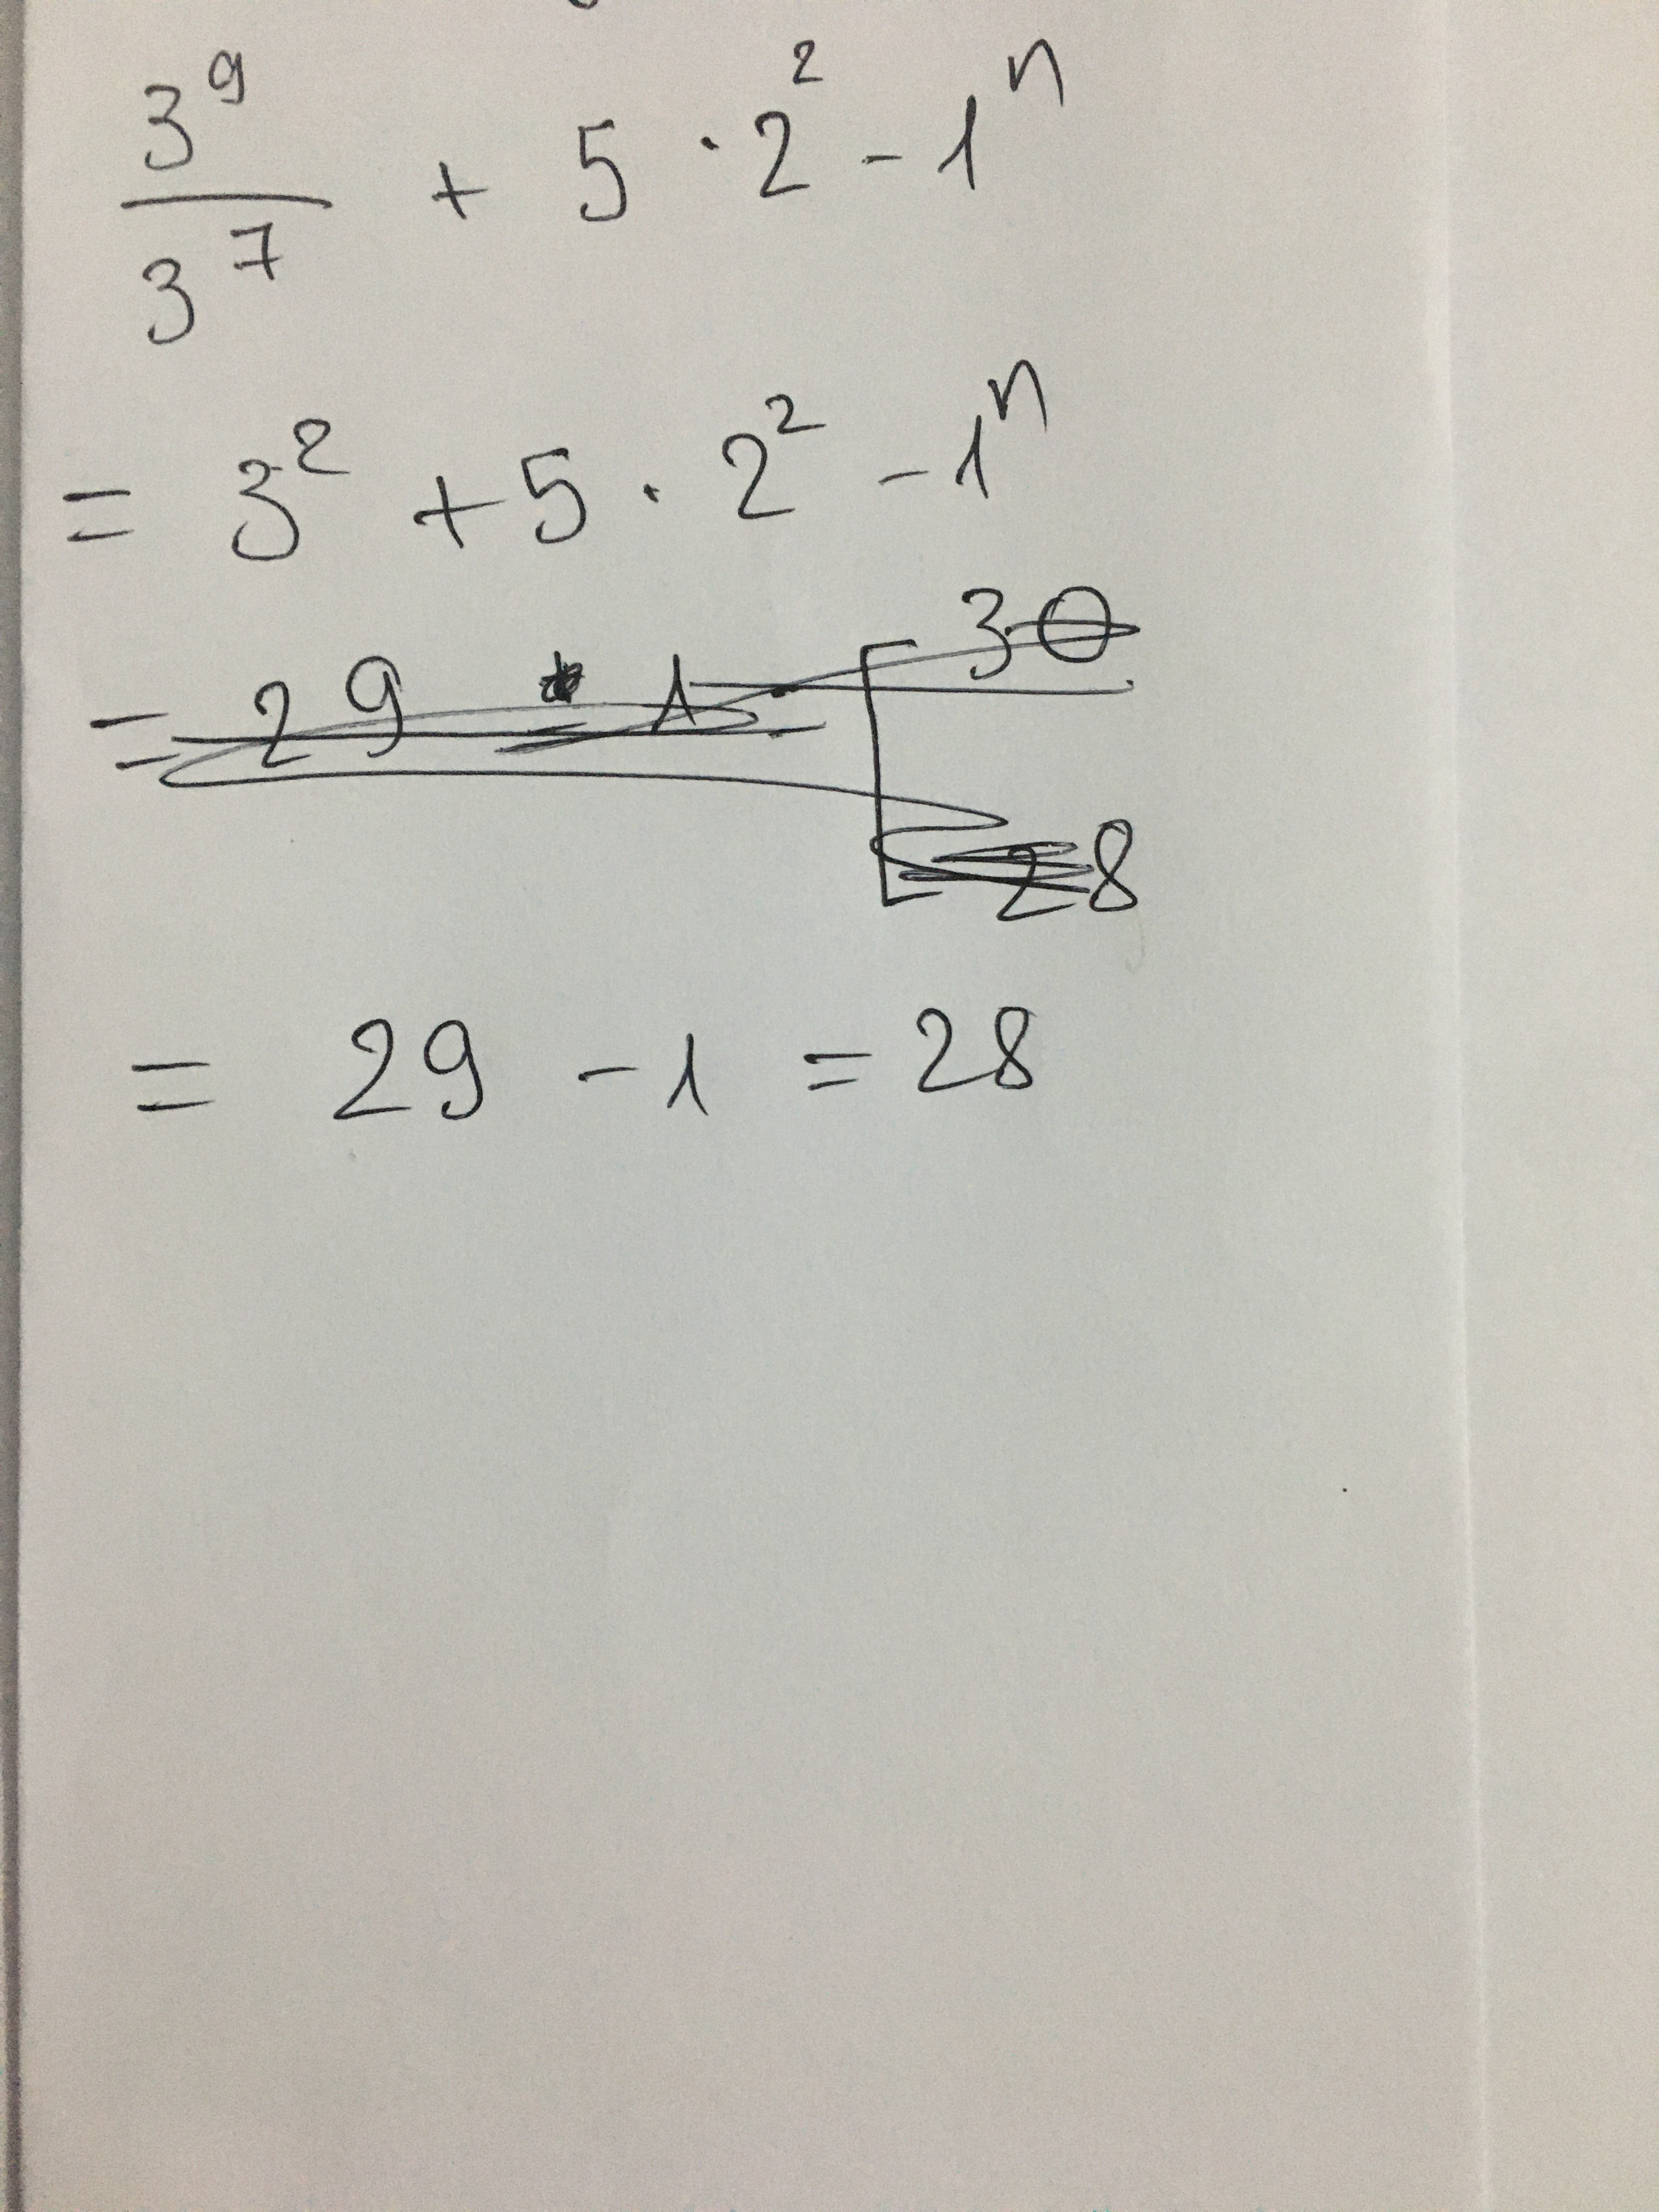 3⁹/3⁷ + 5 · 2² - 1ⁿ
= 3² + 5 · 2² - 1ⁿ
= 29 1 = [ 30
28
= 29 - 1 = 28